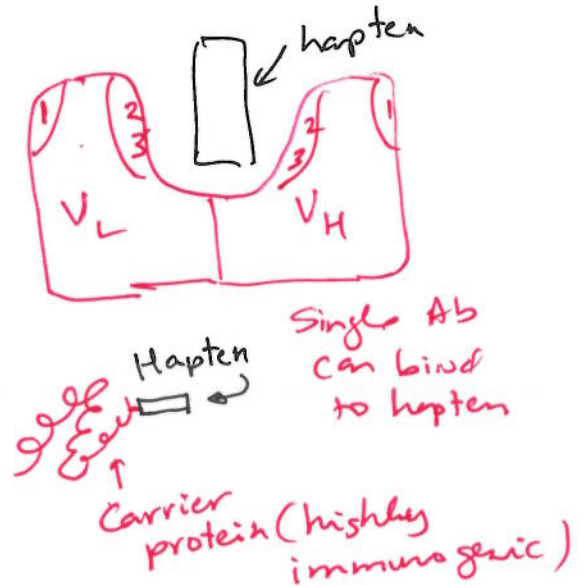 hapten
1
2
3
2
3
1
VL
VH
Single Ab
can bind
to hapten
Hapten
Carrier
protein (highly
immunogenic)